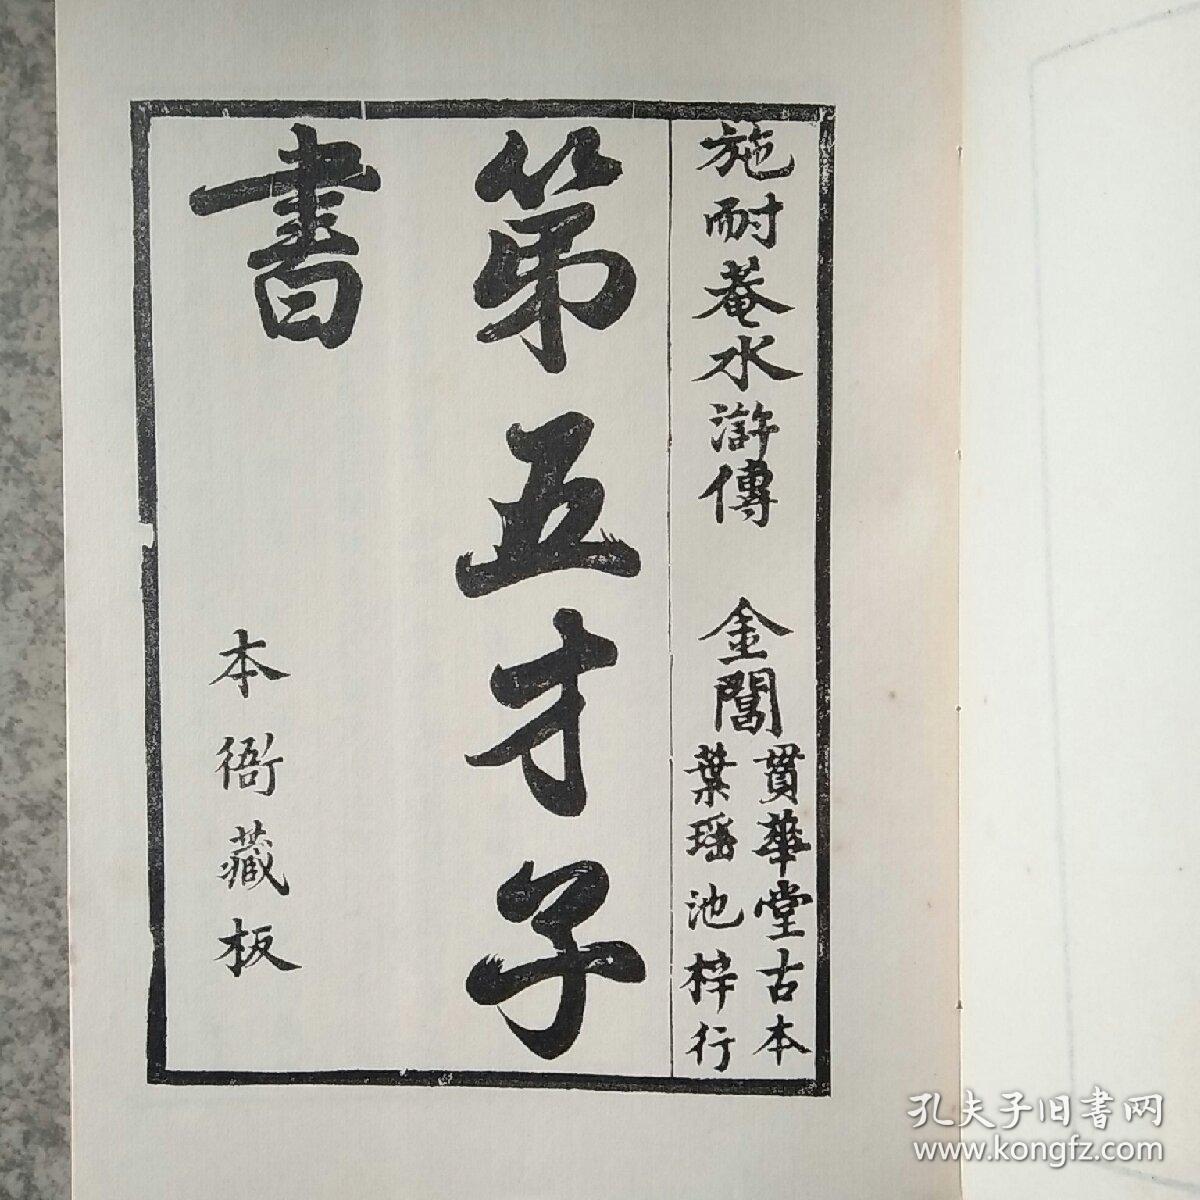 施耐菴水滸傳 金閶
貫華堂古本
葉瑶池梓行
第五才子
書
本衙藏板
孔夫子旧書网
www.kongfz.com